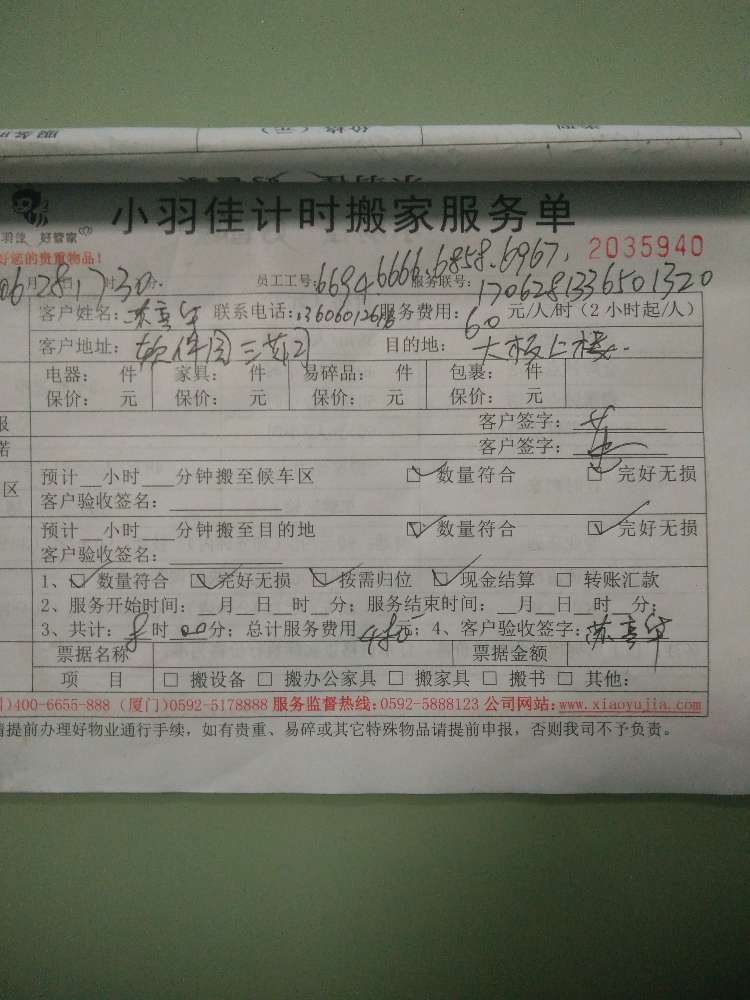 小羽佳计时搬家服务单
羽佳 好管家
2035940
好您的贵重物品！
06月28日17时30分. 员工工号:6694 6666.6858.6967, 服务联号:1706281336501320
客户姓名: 联系电话: 服务费用: 60 元/人/时（2小时起/人）
客户地址: 软件园三期 目的地: 大板上楼.
电器: 件 家具: 件 易碎品: 件 包裹: 件
保价: 元 保价: 元 保价: 元 保价: 元
报 客户签字:
诺 客户签字:
区 预计__小时___分钟搬至候车区 数量符合 完好无损
客户验收签名:
预计__小时___分钟搬至目的地 数量符合 完好无损
客户验收签名:
1、 数量符合 完好无损 按需归位 现金结算 转账汇款
2、服务开始时间: __月__日__时__分; 服务结束时间: __月__日__时__分;
3、共计: 8时00分; 总计服务费用480元; 4、客户验收签字:
票据名称 票据金额
项 目 搬设备 搬办公家具 搬家具 搬书 其他:
)400-6655-888 (厦门)0592-5178888 服务监督热线:0592-5888123 公司网站:www.xiaoyujia.com
请提前办理好物业通行手续，如有贵重、易碎或其它特殊物品请提前申报，否则我司不予负责。